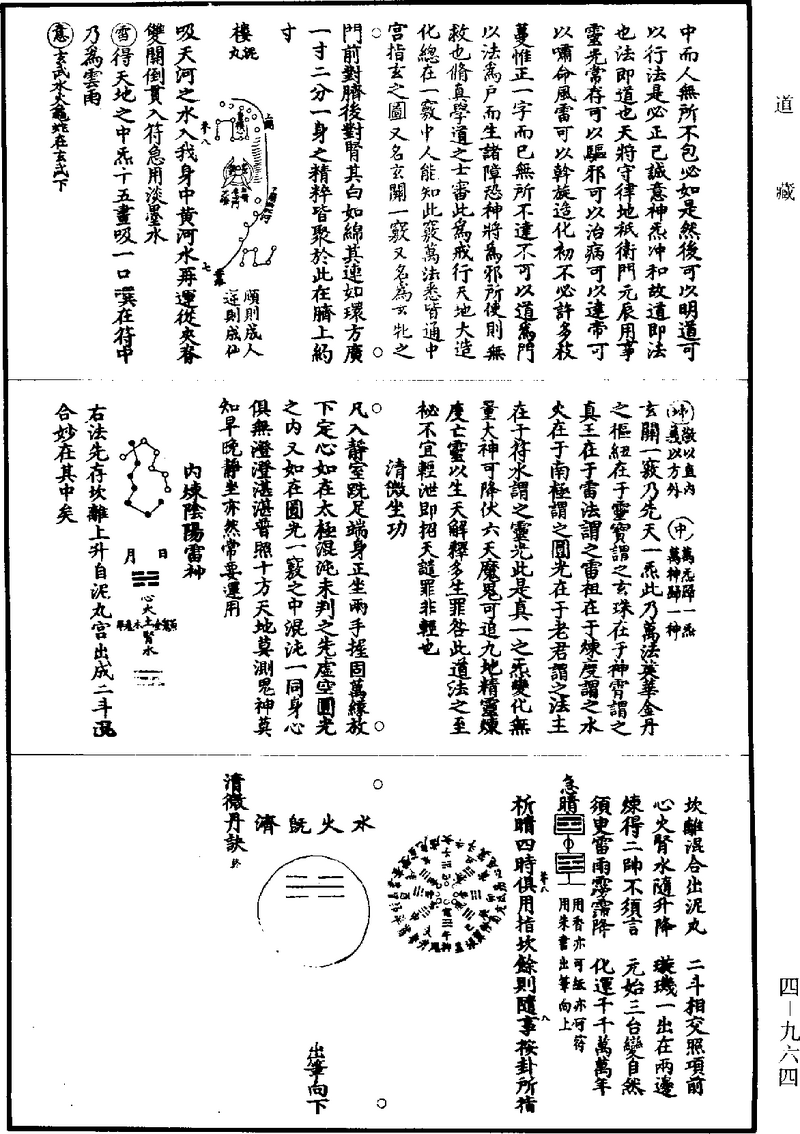 道藏
中而人無所不包必如是然後可以明道可
以行法是必正己誠意神炁沖和故道即法
也法即道也天將守律地祇衛門元辰用事
靈光常存可以驅邪可以治病可以達帝可
以嘯命風雷可以斡旋造化初不必許多枝
蔓惟正一字而已無所不達不可以道為門
以法為戶而生諸障恐神將為邪所使則無
救也脩真學道之士審此為戒行天地大造
化總在一竅中人能知此竅萬法悉皆通中
宮指玄之圖又名玄關一竅又名為玄牝之
門前對臍後對腎其白如綿其連如環方廣
一寸二分一身之精粹皆聚於此在臍上約
寸
泥丸
樓
順則成人
逆則成仙
吸天河之水入我身中黃河水再運從夾脊
雙關倒貫入符急用淡墨水
雷得天地之中炁十五畫吸一口噀在符中
乃為雲雨
意玄武水火龜蛇在玄武下
敬以直內
義以方外
中
萬炁歸一炁
萬神歸一神
玄關一竅乃先天一炁此乃萬法英華金丹
之樞紐在于靈寶謂之玄珠在于神霄謂之
真王在于雷法謂之雷祖在于煉度謂之水
火在于南極謂之圓光在于老君謂之法主
在于符水謂之靈光此是真一之炁變化無
量大神可降伏六天魔鬼可追九地精靈煉
度亡靈以生天解釋多生罪咎此道法之至
秘不宜輕泄即招天譴罪非輕也
清微坐功
凡入靜室跣足端身正坐兩手握固萬緣放
下定心如在太極混沌未判之先虛空圓光
之內又如在圓光一竅之中混沌一同身心
俱無澄澄湛湛普照十方天地莫測鬼神莫
知早晚靜坐亦然常要運用
內煉陰陽雷神
日
月
心火土腎水
右法先存坎離上升自泥丸宮出成二斗混
合妙在其中矣
坎離混合出泥丸　二斗相交照項前
心火腎水隨升降　璇璣一出在兩邊
煉得二帥不須言　元始三台變自然
須臾雷雨霶霈降　化運千千萬萬年
急晴
用香亦可紙亦可符
用朱書出筆向上
祈晴四時俱用指坎餘則隨事按卦所指
水火既濟
出筆向下
清微丹訣終
四—九六四